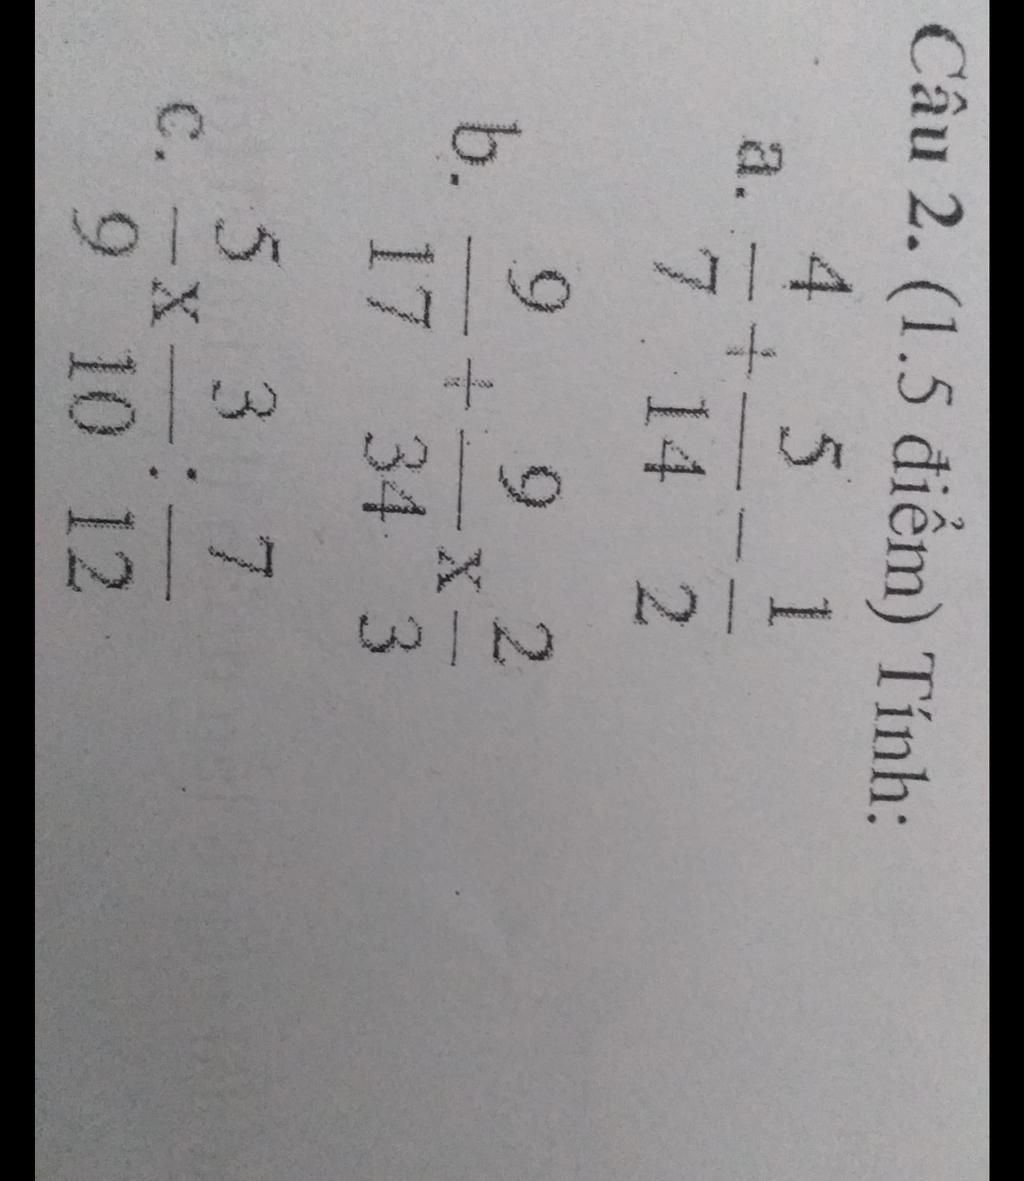 Câu 2. (1.5 điểm) Tính:
a. 4/7 + 5/14 − 1/2
b. 9/17 + 9/34 x 2/3
c. 5/9 x 3/10 : 7/12